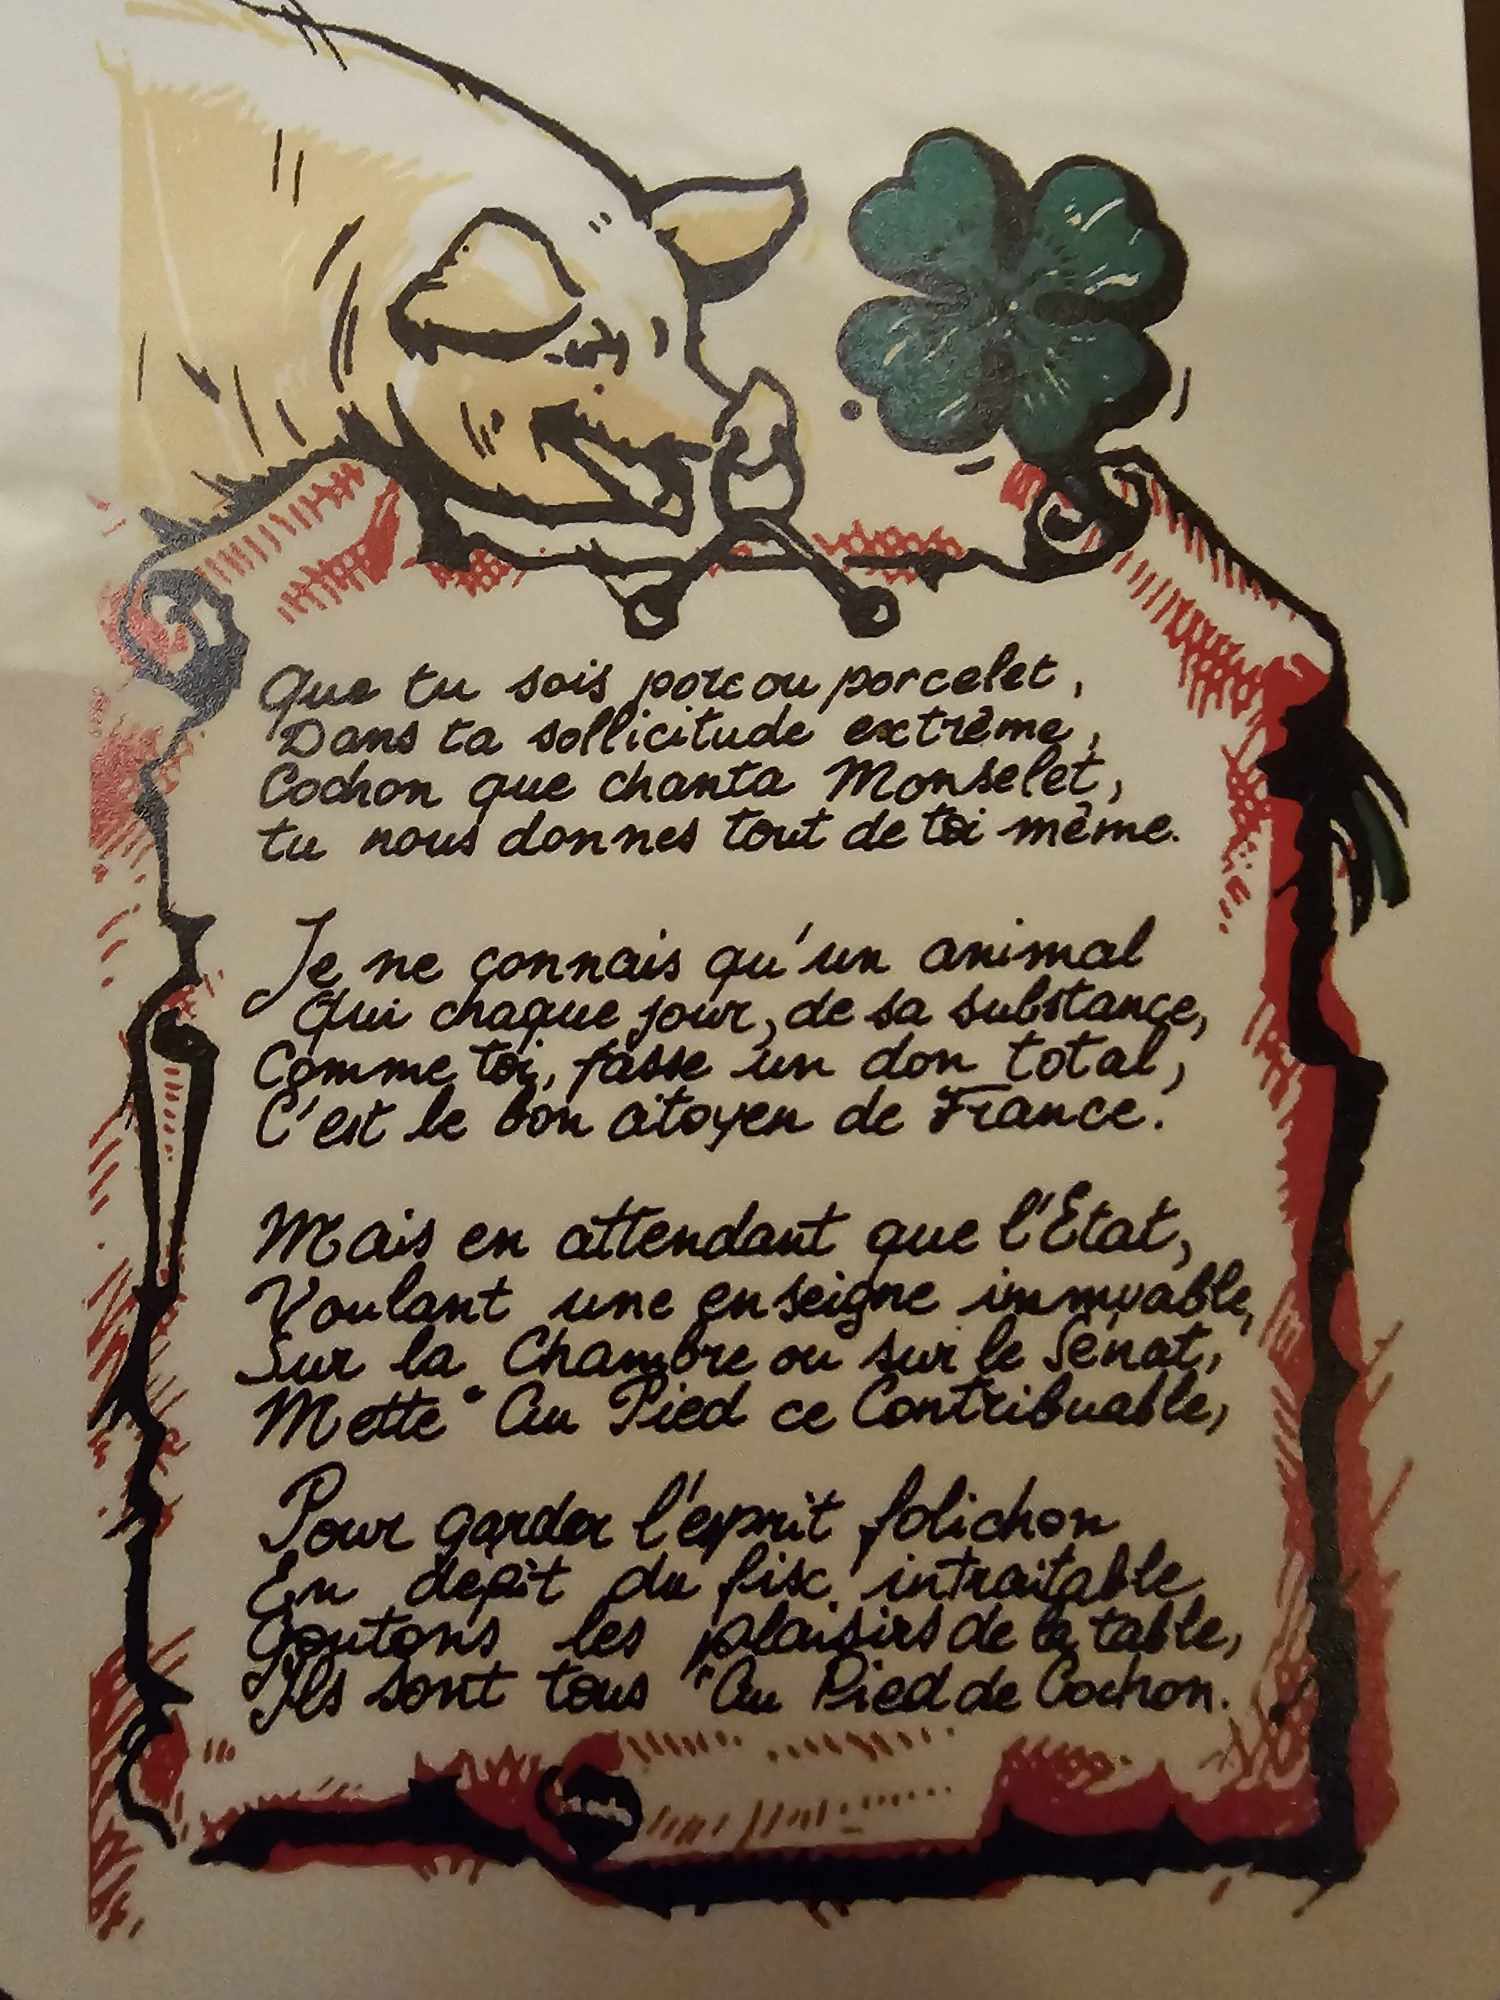 Que tu sois porc ou porcelet,
Dans ta sollicitude extrême,
Cochon que chanta Monselet,
tu nous donnes tout de toi même.
Je ne connais qu'un animal
Qui chaque jour, de sa substance,
Comme toi, fasse un don total,
C'est le bon citoyen de France.
Mais en attendant que l'Etat,
Voulant une enseigne immuable,
Sur la Chambre ou sur le Sénat,
Mette "Au Pied ce Contribuable,
Pour garder l'esprit folichon
En depit du fisc intraitable
Goutons les plaisirs de la table,
Ils sont tous "Au Pied de Cochon.